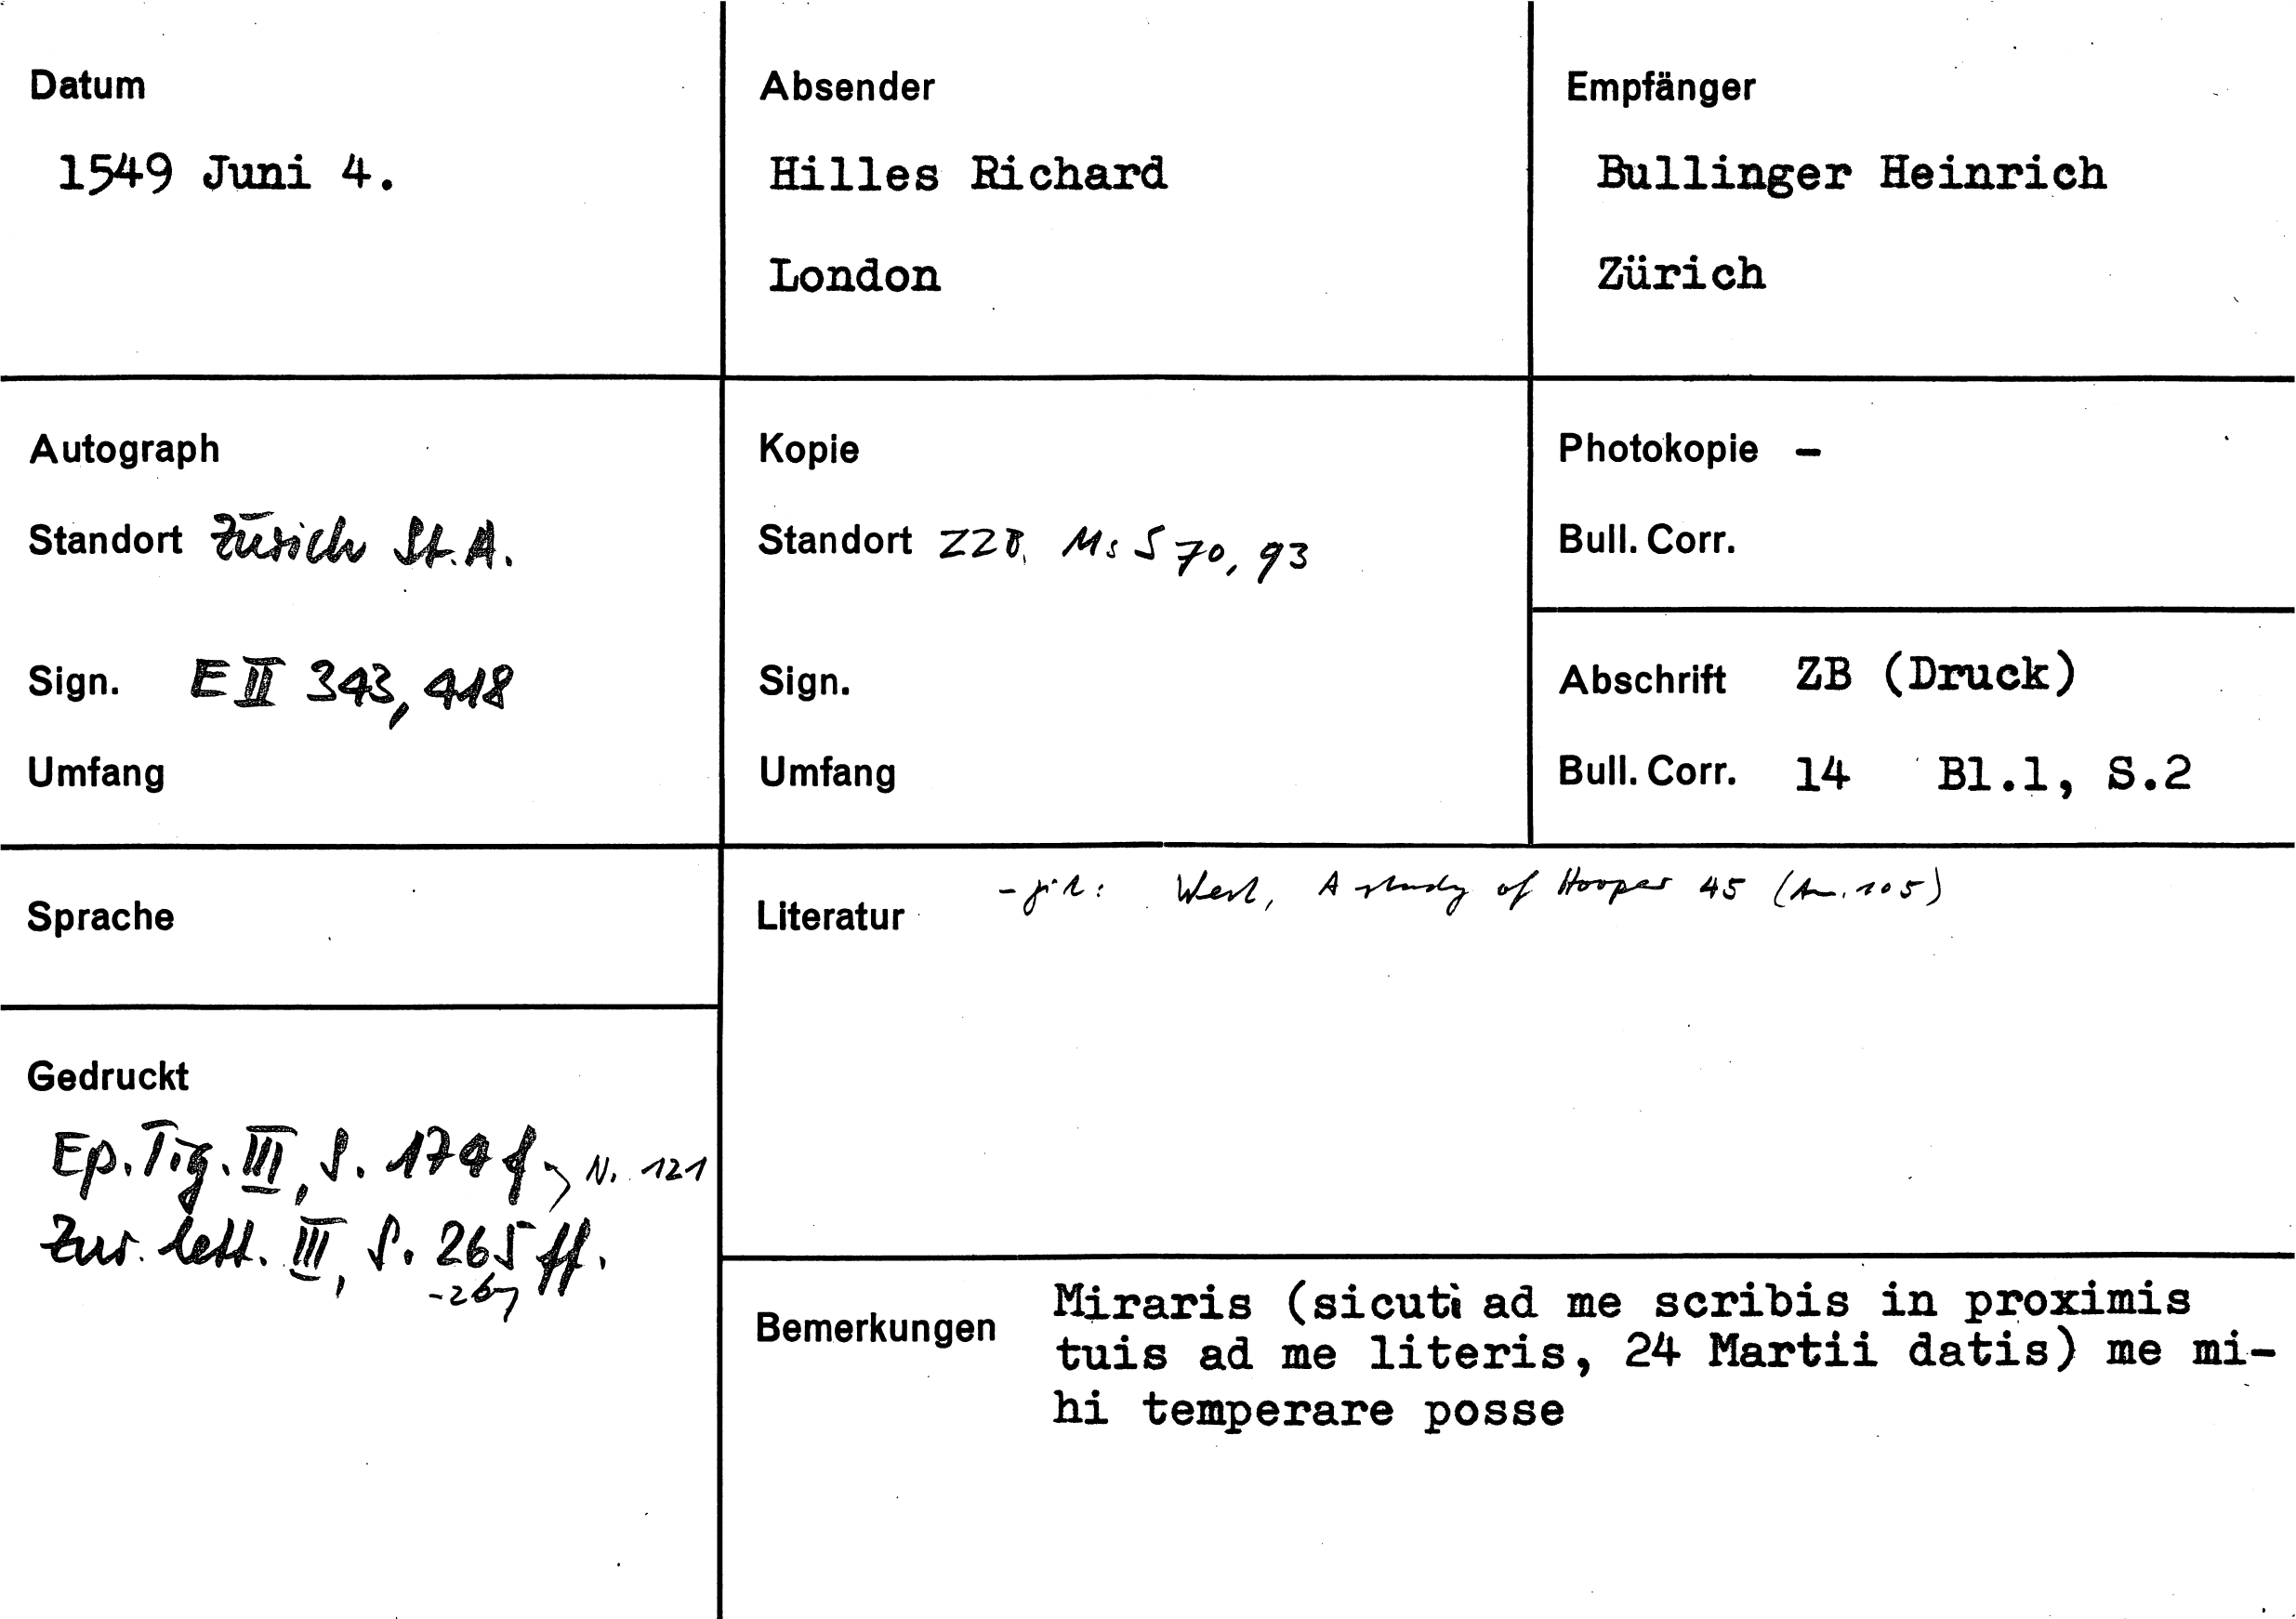 Datum
1549 Juni 4.
Absender
Hilles Richard
London
Empfänger
Bullinger Heinrich
Zürich
Autograph
Standort Zürich St.A.
Sign. E II 343, 418
Umfang
Kopie
Standort ZZB, Ms S 70, 93
Sign.
Umfang
Photokopie –
Bull. Corr.
Abschrift ZB (Druck)
Bull. Corr. 14 Bl.1, S.2
Sprache
Literatur West, A study of Hooper 45 (An. 105)
Gedruckt
Ep. Tig. III, S. 174 f, N. 121
Zur. lett. III, S. 265 ff.
-267
Bemerkungen
Miraris (sicuti ad me scribis in proximis
tuis ad me literis, 24 Martii datis) me mi-
hi temperare posse